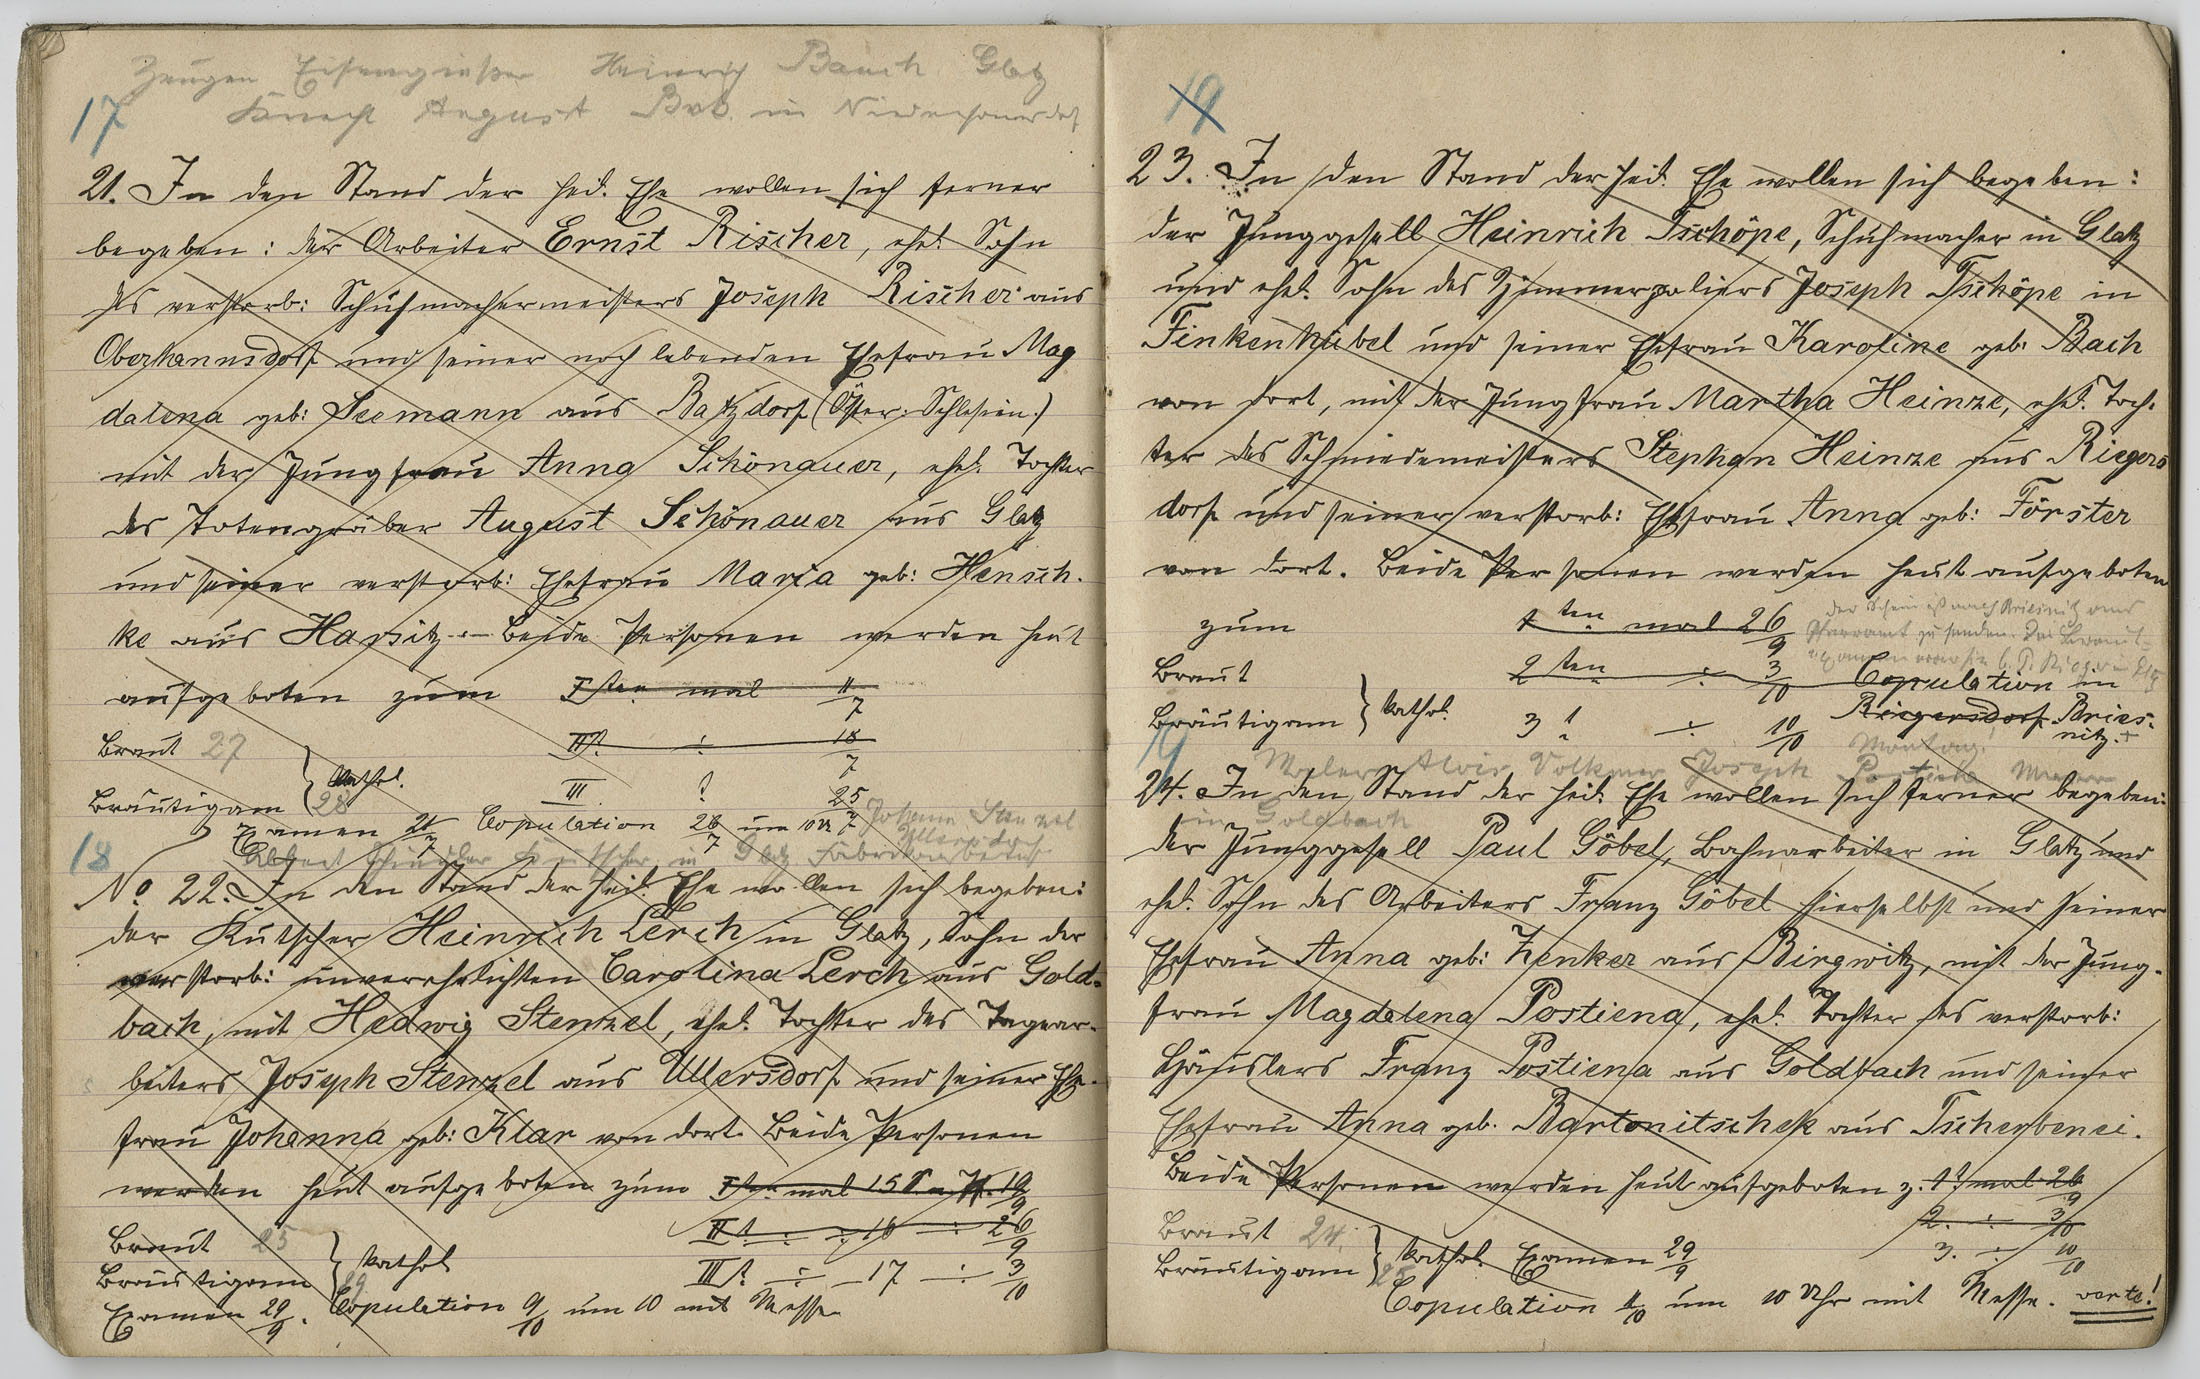 Zeugen Eisengießer Heinrich Bauch Glatz
Knecht August in Niederhannsdorf
17
21. In den Stand der heil. Ehe wollen sich ferner
begeben: der Arbeiter Ernst Rischer, ehel. Sohn
des verstorb: Schuhmachermeisters Joseph Rischer aus
Oberhannsdorf und seiner noch lebenden Ehefrau Mag
dalena geb: Seemann aus Batzdorf (Öster. Schlesien.)
mit der Jungfrau Anna Schönauer, ehel. Tochter
des Totengräber August Schönauer aus Glatz
und seiner verstorb: Ehefrau Maria geb: Hensch-
ke aus Hassitz. Beide Personen werden heut
aufgeboten zum Isten mal 11/7
Braut 27 II t. ÷ 18/7
Bräutigam 28 } kathol. III t 25/7
Examen 21/7 Copulation 28/7 um 10 Uhr
Johann Stenzel
Ullersdorf
18
Albert Kutscher in Glatz Fabrikarbeiter
No. 22. In den Stand der heil. Ehe wollen sich begeben:
der Kutscher Heinrich Lerch in Glatz, Sohn der
verstorb: unverehelichten Carolina Lerch aus Gold-
bach, mit Hedwig Stenzel, ehel. Tochter des Tagear-
beiters Joseph Stenzel aus Ullersdorf und seiner Ehe-
frau Johanna geb: Klar von dort. Beide Personen
werden heut aufgeboten zum Isten mal 15 S. n. Pf. 19/9
Braut 25 II t. ÷ 16 ÷ 26/9
Bräutigam 29 } kathol. III t ÷ 17 ÷ 3/10
Examen 29/9. Copulation 9/10 um 10 mit Messe
19
23. In den Stand der heil. Ehe wollen sich begeben:
der Junggesell Heinrich Tschöpe, Schuhmacher in Glatz
und ehel. Sohn des Zimmerpoliers Joseph Tschöpe in
Finkenhübel und seiner Ehefrau Karoline geb: Bach
von dort, mit der Jungfrau Martha Heinze, ehel. Toch-
ter des Schmiedemeisters Stephan Heinze aus Riegers
dorf und seiner verstorb: Ehefrau Anna geb: Förster
von dort. Beide Personen werden heut aufgeboten
zum 1ten mal 26/9
der Schein ist nach Briesnitz ans
Pfarramt zu senden. Das Braut-
examen
Braut 2ten ÷ 3/10 Copulation in
Bräutigam } kathol. 3 t ÷ 10/10 Riegersdorf Bries-
nitz.
19
Montag
Maler Alois Volkmer Joseph Postiena Maurer
in Goldbach
24. In den Stand der heil. Ehe wollen sich ferner begeben:
der Junggesell Paul Göbel, Bahnarbeiter in Glatz und
ehel. Sohn des Arbeiters Franz Göbel hierselbst und seiner
Ehefrau Anna geb: Zenker aus Birgwitz, mit der Jung-
frau Magdalena Postiena, ehel. Tochter des verstorb:
Häuslers Franz Postiena aus Goldbach und seiner
Ehefrau Anna geb. Bartonitschek aus Tscherbenei.
Beide Personen werden heut aufgeboten z. 1t mal 26/9
2. ÷ 3/10
Braut 24. 3. ÷ 10/10
Bräutigam 25 } kathol. Examen 29/9
Copulation 11/10 um 10 Uhr mit Messe. verte!